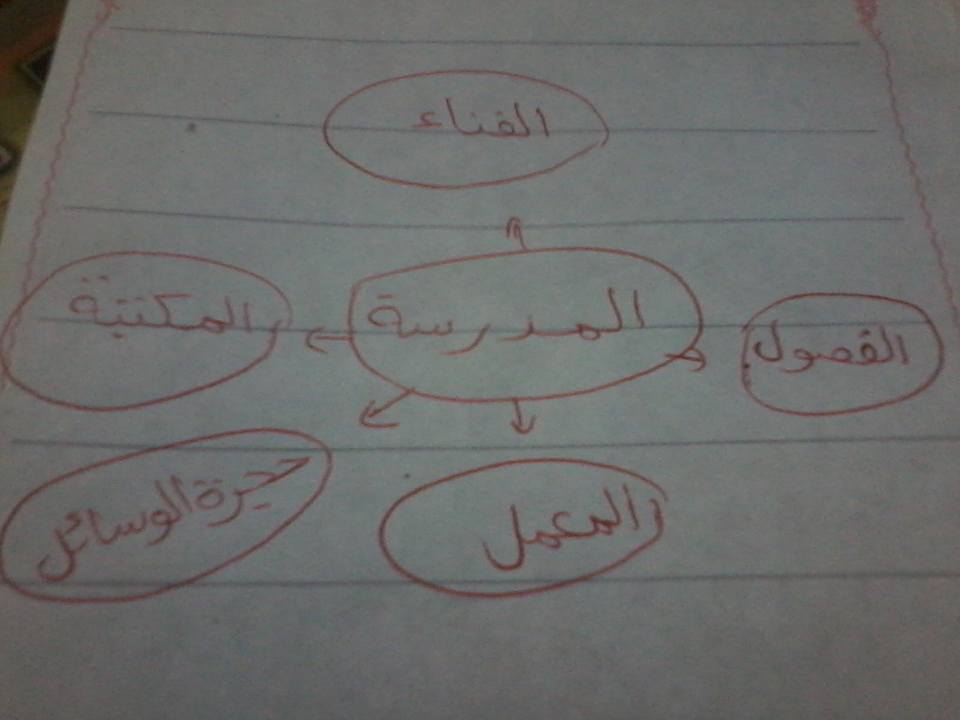 الفناء
المدرسة
الفصول
المكتبة
المعمل
حجرة الوسائل